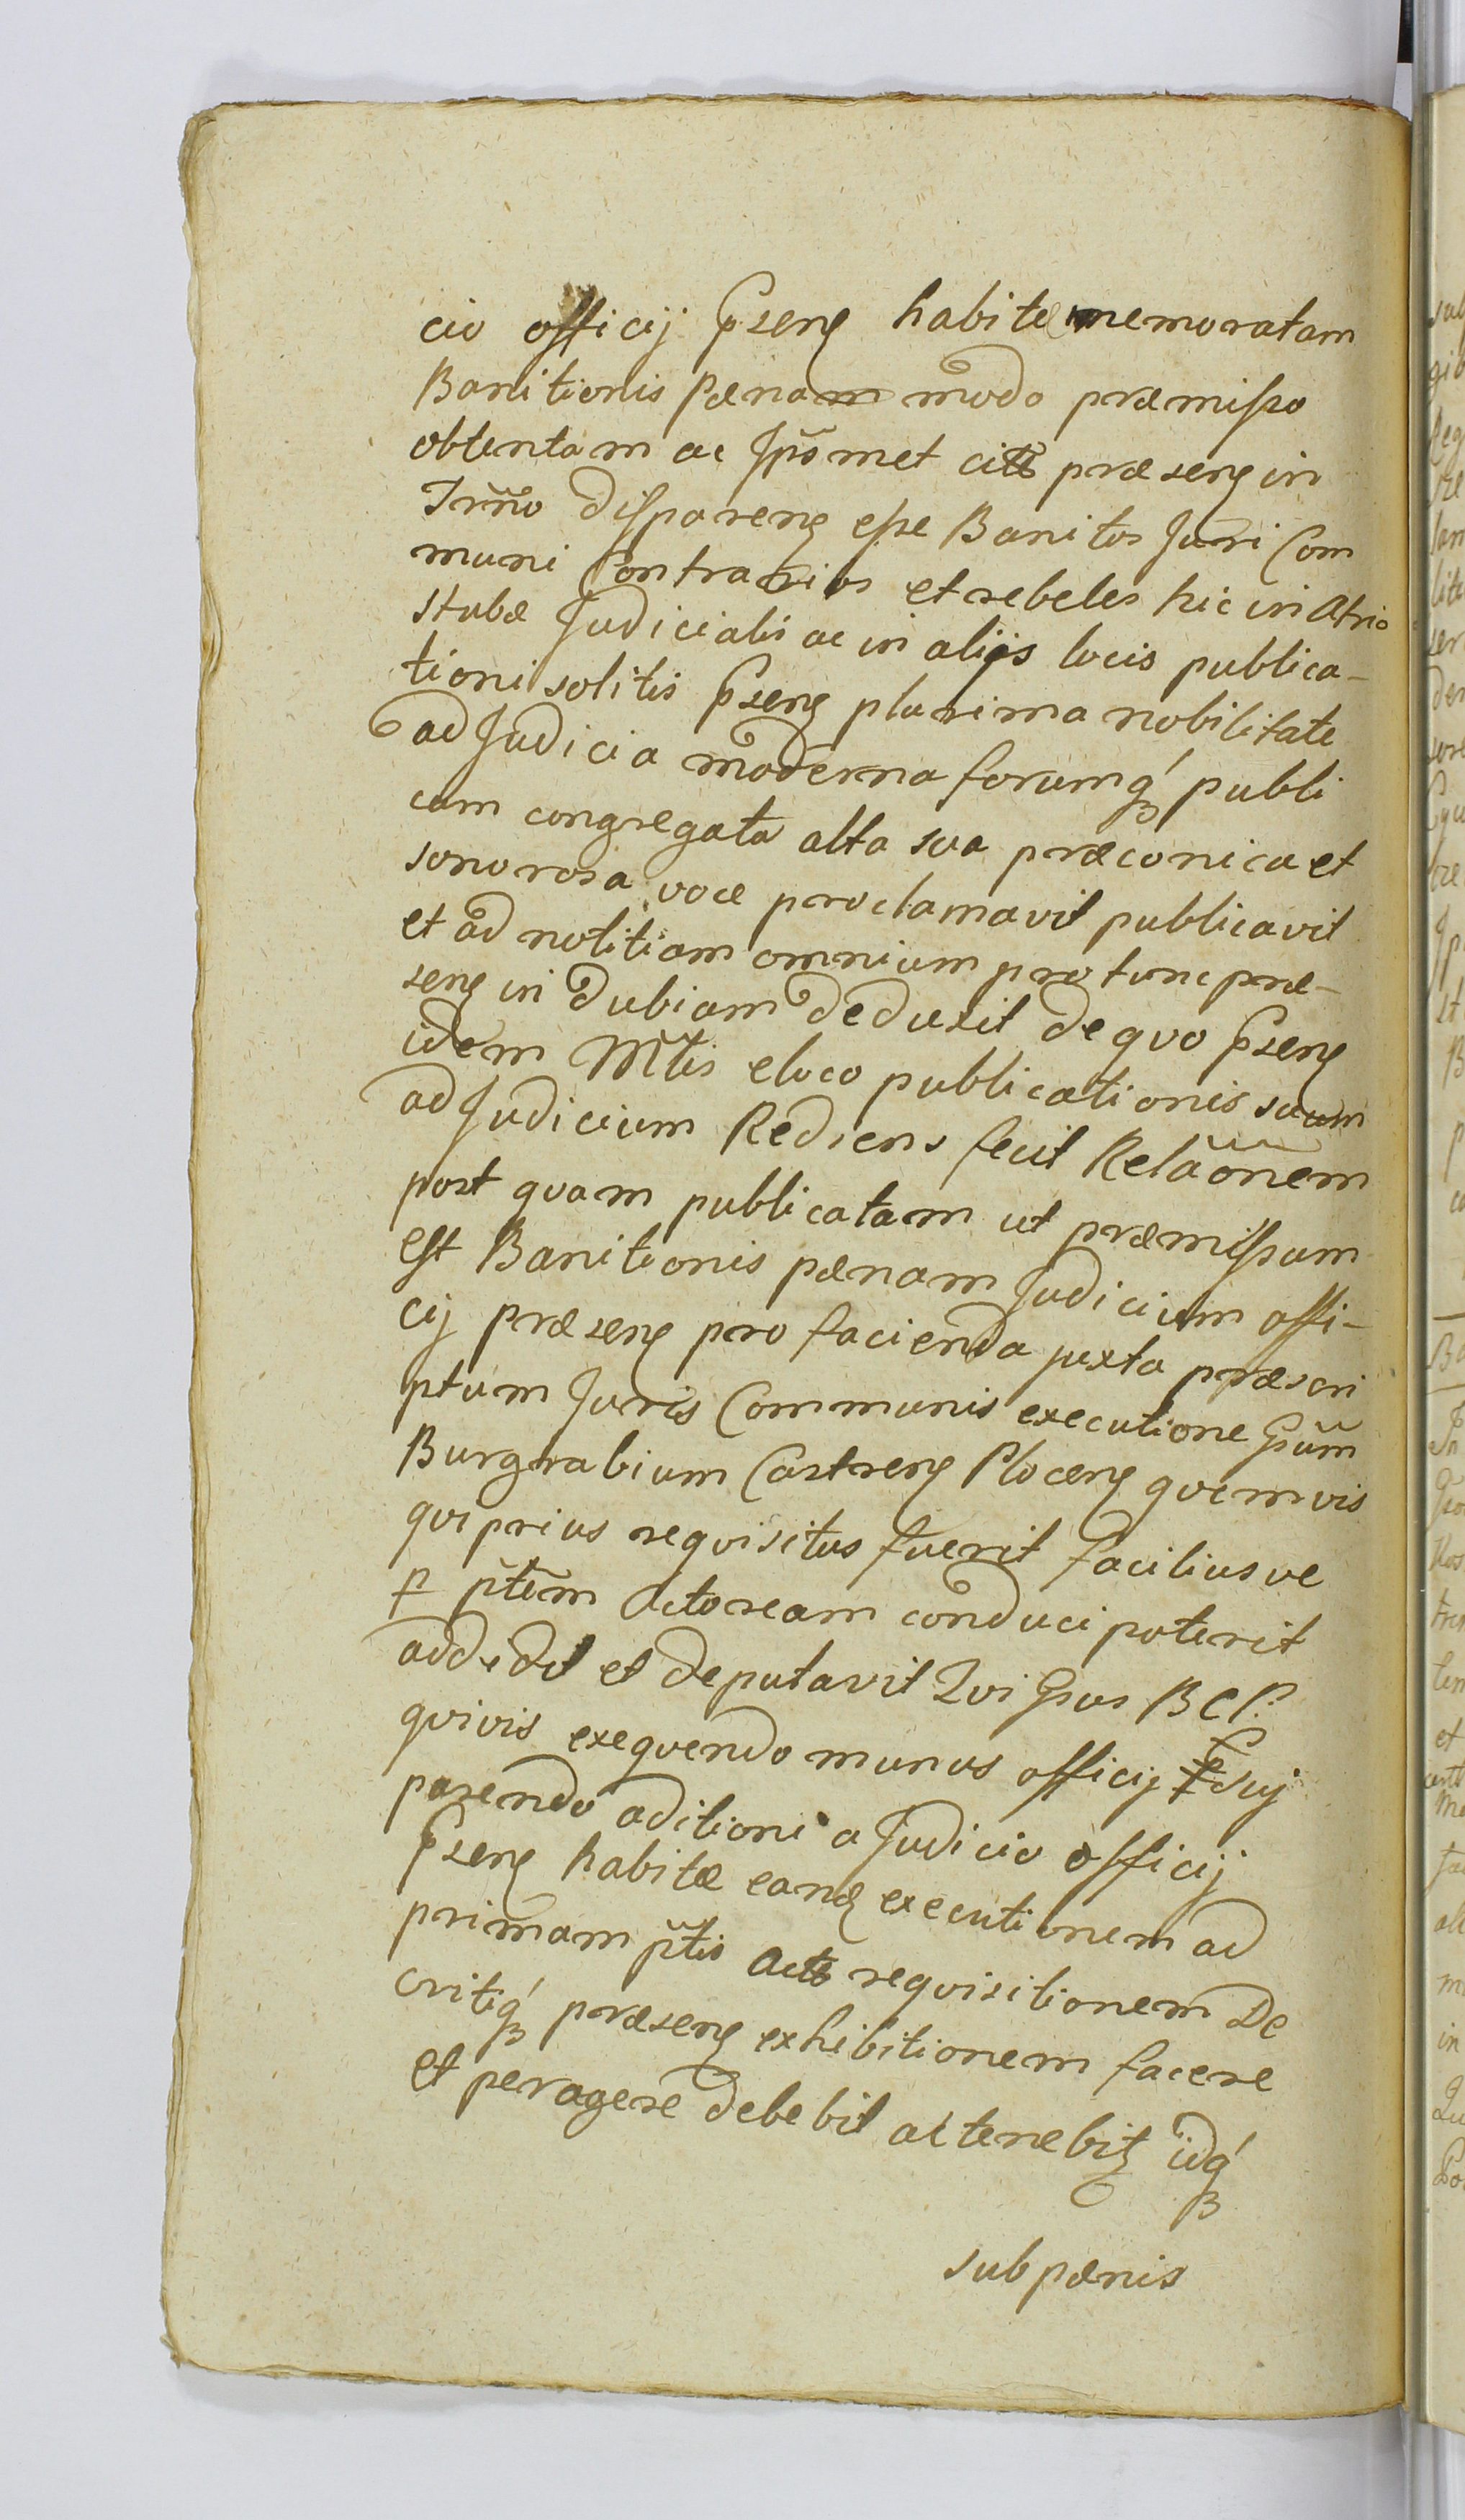 cio officij Pseng habitæ memoratam
Banitionis Pænam modo præmisso
obtentam ac Ipsos̃met citos præseng in
Trm̃o dispareng esse Banitos Juri Com
muni Contrarios et rebeles hic in Atrio
stubæ Judicialis ac in alijs locis publica-
tioni solitis Pseng plurima nobilitate
ad Judicia moderna forumq́ publi
cum congregata alta sua præconica et
sonorosa voce proclamavit publicavit
et ad notitiam omnium pro tunc præ-
seng in dubiam deduxit de quo Pseng
idem Mtis eloco publicationis suum
ad Judicium Rediens fecit Relãonem
post quam publicatam ut præmissum
est Banitionis pænam Judicium offi-
cij præseng pro facienda juxta præscri
ptum Juris Communis executione Gsũm
Burgrabium Castreng Ploceng quemvis
qui prius requisitus fuerit faciliusve
p ptẽm Actoream conduci poterit
addidit et deputavit Qui Gsus B C P:
quivis exequendo munus officij suj
parendo aditioni a Judicio officij
Pseng habitæ eandg executionem ad
primam p̃tis Acts requisitionem De
critiq́ præseng exhibitionem facere
et peragere debebit ac tenebitz idq́
sub pænis